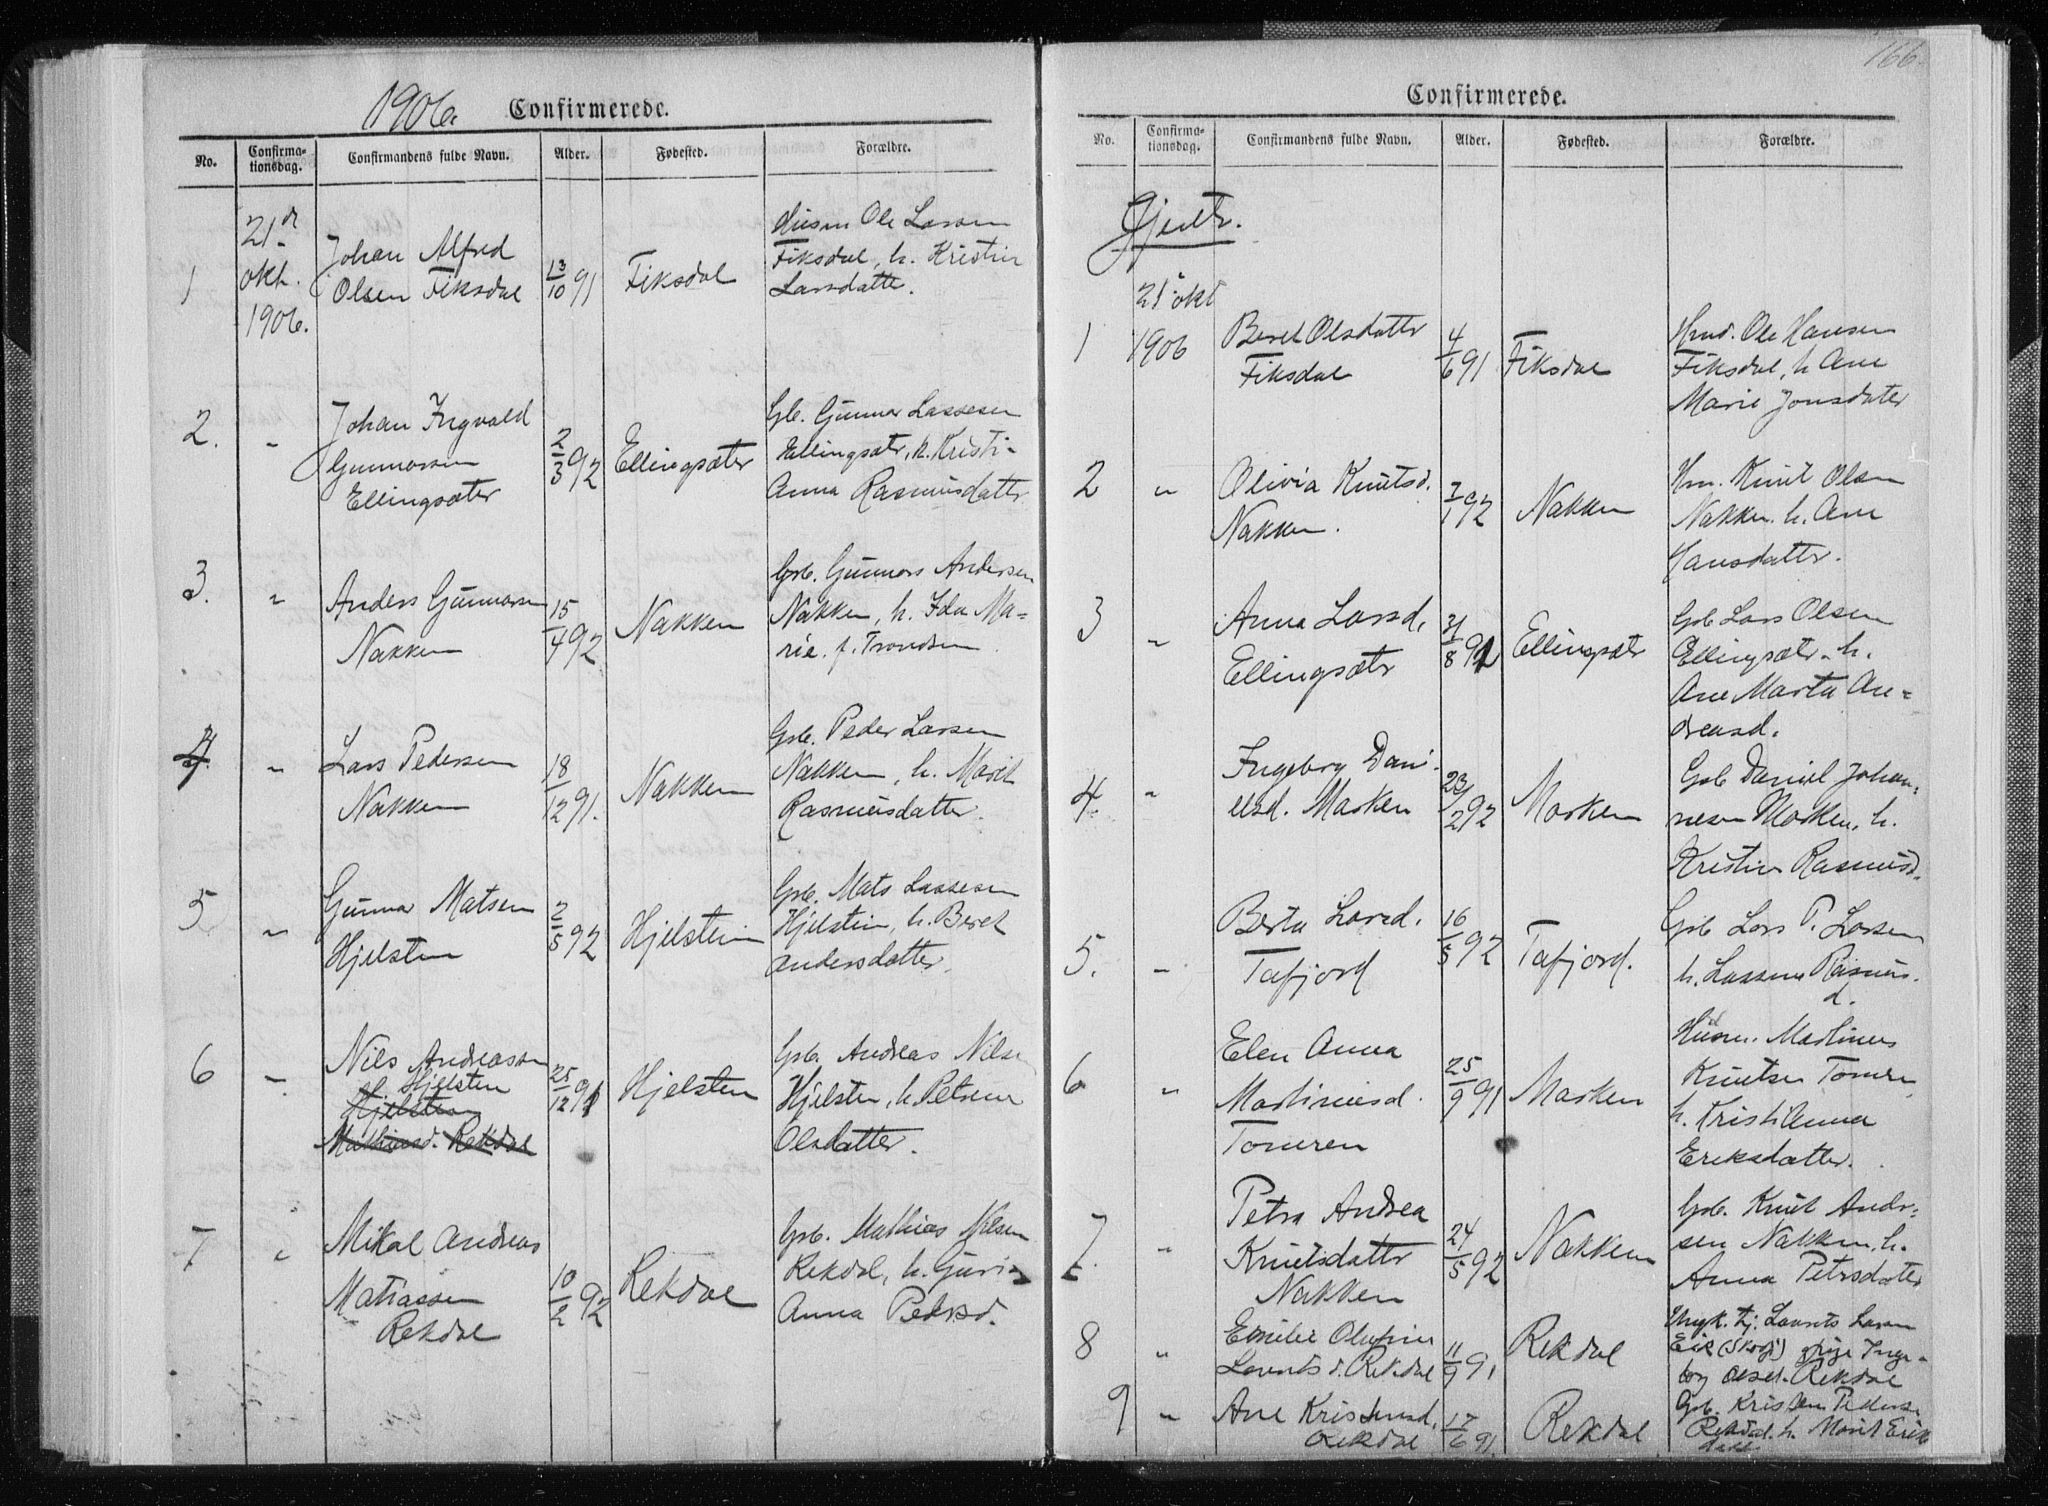 1906.
Confirmerede.
No.
Confirma-
tionsdag.
Confirmandens fulde Navn.
Alder.
Fødested.
Forældre.
21de
okt.
1906.
1
Johan Alfred
Olsen Fiksdal
13/10 91
Fiksdal
Husm Ole Larsen
Fiksdal, h. Kristin
Larsdatter.
2.
"
Johan Ingvald
Gunnarsen
Ellingsæter
2/3 92
Ellingsæter
Gb. Gunnar Lassesen
Ellingsætr, h. Kristi-
Anna Rasmusdatter
3.
"
Anders Gunnarsen
Nakken
15/4 92
Nakken
Grb. Gunnars Andersen
Nakken, h. Ida Ma-
rie. f. Trondsen
4.
"
Lars Pedersen
Nakken
18/12 91.
Nakken
Grb. Peder Larsen
Nakken, h. Marit
Rasmusdatter.
5
"
Gunnar Matsen
Hjelsten
2/5 92
Hjelstein
Grb. Mats Lassesen
Hjelstein, h. Beret
Andersdatter.
6
"
Nils Andreassen
Hjelsten
Hjelsten
Mathiasd. Rekdal
25/12 91
Hjelsten
Grb. Andreas Nilse
Hjelsten, h. Petrine
Olsdatter.
7
"
Mikal Andreas
Matiassen
Rekdal
10/2 92
Rekdal
Grb. Mathias Nilsen
Rekdal, h. Guri-
Anna Pedersd.
166.
Confirmerede.
No.
Confirma-
tionsdag.
Confirmandens fulde Navn.
Alder.
Fødested.
Forældre.
Gjentr.
21 okt
1
1906
Beret Olsdatter
Fiksdal
4/6 91
Fiksdal
Ole Hansen
Fiksdal, h Ane
Marie Jonsdater
2
"
Olivia Knutsd.
Nakken.
7/1 92
Nakken
Hm. Knut Olsen
Nakken. h. Ane
Hansdatter.
3
"
Anna Larsd.
Ellingsætr
31/8 91
Ellingsætr
Grb Lars Olsen
Ellingsætr. h.
Ane Marta An-
dreasd.
4.
"
Ingeborg Dani-
elsd. Masken
23/2 92
Masken
Grb Daniel Johan-
nesen Masken, h.
Kristine Rasmusd.
5.
"
Berta Larsd.
Tafjord
16/5 92
Tafjord.
Grb Lars P. Larsen
h. Lassine Rasmus.
d.
6
"
Elen Anna
Martinusd.
Tomren
25/9 91
Masken
Husm. Martinus
Knutsen Tomren
h. KristiAnna
Eriksdatter.
7.
"
Petra Andrea
Knutsdatter
Nakken
24/5 92
Nakken
Grb. Knut Ander-
sen Nakken, h.
Anna Petersdatter
8
"
Emilie Olufine
Laurits d. Rekdal
11/9 91
Rekdal
Ungk. tj. Laurits Larsen
Eik (Skodje) pige Inge-
borg Olsd. Rekdal
9
"
Ane Kristensd.
Rekdal
17/6 91.
Rekdal
Grb. Kristen Pederse
Rekdal. h. Marit Erik
datt.